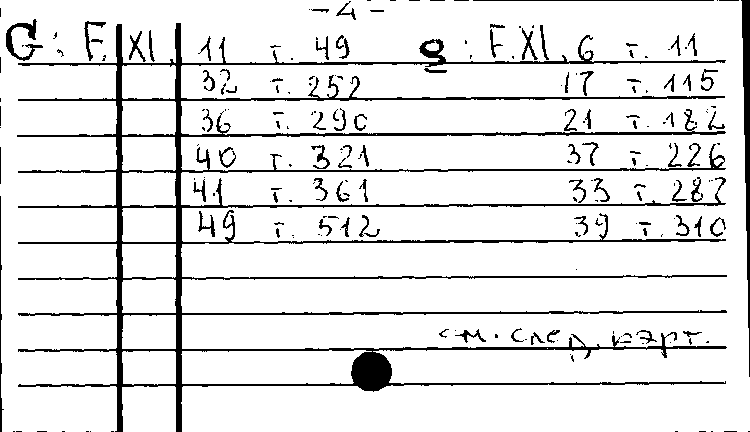 - 4 -
G: F. XI, 11 т. 49 g: F. XI, 6 т. 11
32 т. 252 17 т. 115
36 т. 290 21 т. 182
40 т. 321 37 т. 226
41 т. 361 33 т. 287
49 т. 512 39 т. 310
см. след. карт.